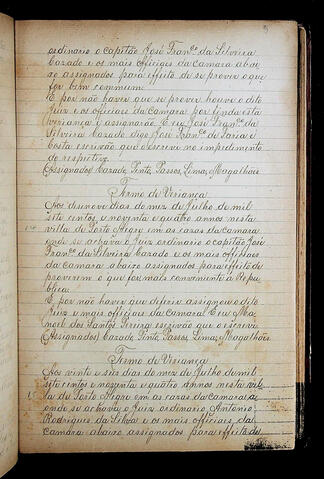 ordinario o Capitão José Franco da Silveira
Cazado e os mais officiaes da Camara abai-
xo assignados para effeito de se prover o que
for bem commum.
E por não haver que se prover houve o dito
Juiz e os officiaes da Camara por finda esta
veriança e assignarão. E eu José Franco da
Silveira Cazado digo José Franco de Faria e
Costa escrivão que o escreve no impedimento
do respectivo.
(Assignados) Cazado, Pinto, Passos, Lima, Magalhães
Termo de Veriança
Aos desenove dias do mez de Julho de mil
sete centos e noventa e quatro annos nesta
villa de Porto Alegre em as casas da camara
onde se achava o Juiz ordinario o capitão José
Franco da Silveira Cazado e os mais officiaes
da camara abaixo assignados para effeito de
proverem o que for mais conveniente á Repu-
blica.
E por não haver que deferir assignou o dito
Juiz e mais officiaes da camara. E eu Ma-
noel dos Santos Pereira escrivão que o escrevi.
(Assignados) Cazado, Pinto, Passos, Lima, Magalhães.
Termo de Veriança
Aos vinte e seis dias do mez de Julho de mil
sete centos e noventa e quatro annos nesta vil-
la de Porto Alegre em as casas da camara
onde se achava o Juiz ordinario Antonio
Rodrigues da Silva e os mais officiaes da
camara abaixo assignados para effeito de